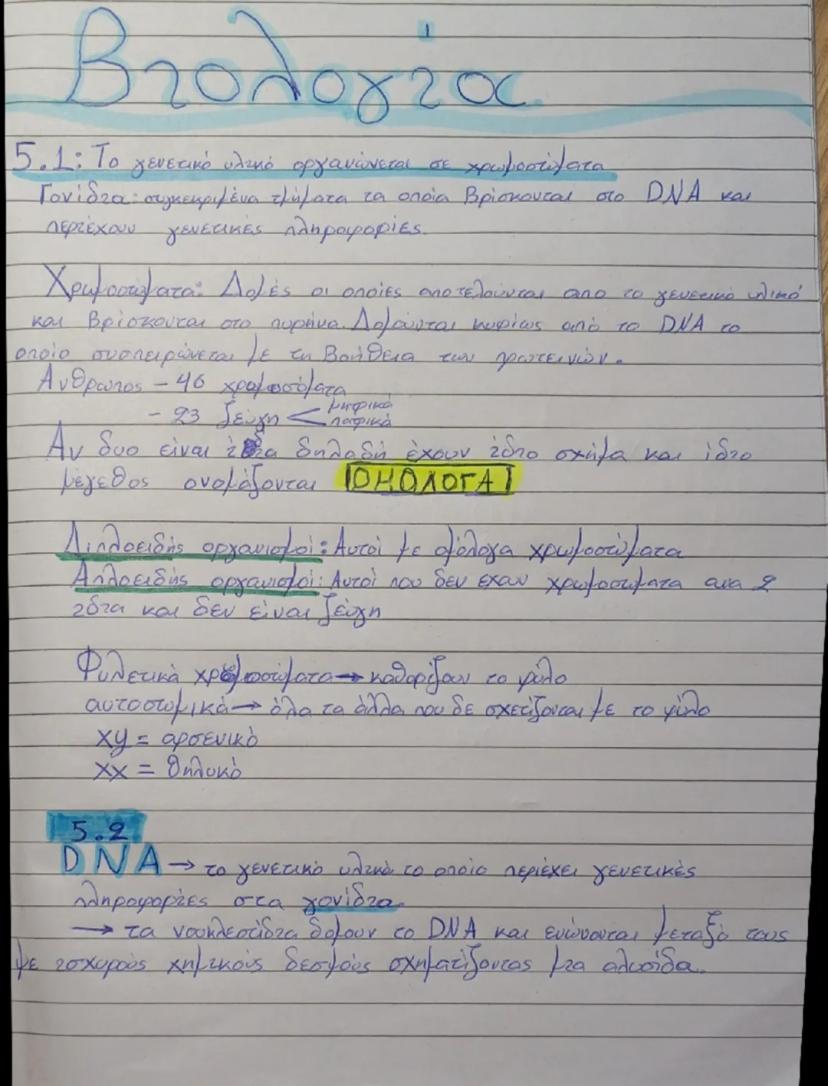 Βιολογία
5.1: Το γενετικό υλικό οργανώνεται σε χρωμοσώματα
Γονίδια: συγκεκριμένα τμήματα τα οποία βρίσκονται στο DNA και
περιέχουν γενετικές πληροφορίες.
Χρωμοσώματα: Δομές οι οποίες αποτελούνται απο το γενετικό υλικό
και βρίσκονται στο πυρήνα. Δομούνται κυρίως από το DNA το
οποίο συσπειρώνεται με τη βοήθεια των πρωτεινών.
Ανθρωπος - 46 χρωμοσώματα
- 23 ζεύγη < μητρικά
πατρικά
Αν δυο είναι ίδια δηλαδή έχουν ίδιο σχήμα και ίδιο
μέγεθος ονομάζονται ΟΜΟΛΟΓΑ
Διπλοειδής οργανισμοί: Αυτοί με ομόλογα χρωμοσώματα
Απλοειδής οργανισμοί: Αυτοί που δεν εχουν χρωμοσωματα ανα 2
ίδια και δεν είναι ζεύγη
Φυλετικά χρωμοσώματα → καθορίζουν το φύλο
αυτοσωμικά → όλα τα άλλα που δε σχετίζονται με το φύλο
xy = αρσενικό
xx = θηλυκό
5.2
DNA → το γενετικό υλικό το οποίο περιέχει γενετικές
πληροφορίες στα γονίδια
→ τα νουκλεοτίδια δομουν το DNA και ενώνονται μεταξύ τους
με ισχυρούς χημικούς δεσμούς σχηματίζοντας μια αλυσίδα.